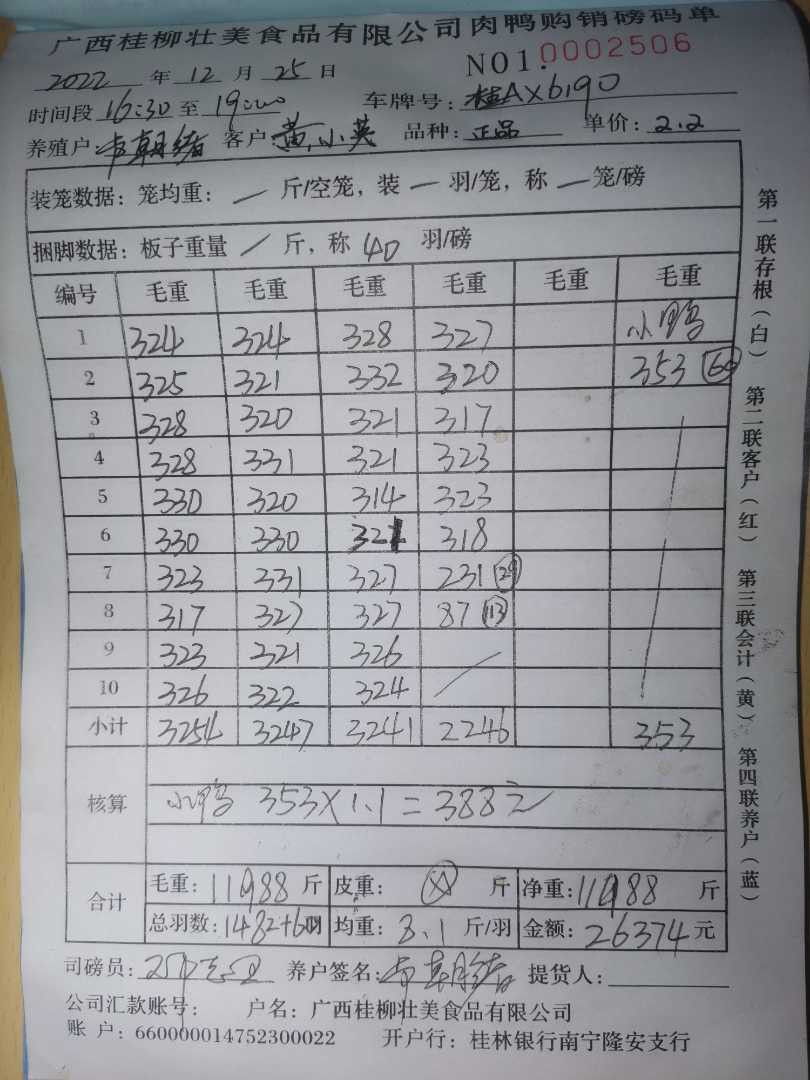 广西桂柳壮美食品有限公司肉鸭购销磅码单
2022 年 12 月 25 日 NO1: 0002506
时间段 16:30 至 19:00 车牌号: 桂AX6190
养殖户: 韦朝绪 客户 黄小英 品种: 正品 单价: 2.2
装笼数据: 笼均重: 一 斤/空笼, 装 一 羽/笼, 称 一 笼/磅
捆脚数据: 板子重量 / 斤, 称 40 羽/磅
编号 毛重 毛重 毛重 毛重 毛重 毛重
1 324 324 328 327 小鸭
2 325 321 332 320 353 (60)
3 328 320 321 317
4 328 331 321 323
5 330 320 314 323
6 330 330 321 318
7 323 331 327 231 (29)
8 317 327 327 87 (13)
9 323 321 326
10 326 322 324
小计 3254 3247 3241 2246 353
核算 小鸭 353×1.1=388元
合计 毛重: 11988 斤 皮重: 斤 净重: 11988 斤
总羽数: 1482+60羽 均重: 8.1 斤/羽 金额: 26374 元
司磅员: 养户签名: 韦朝绪 提货人:
公司汇款账号: 户名: 广西桂柳壮美食品有限公司
账 户: 660000014752300022 开户行: 桂林银行南宁隆安支行
第一联存根(白) 第二联客户(红) 第三联会计(黄) 第四联养户(蓝)